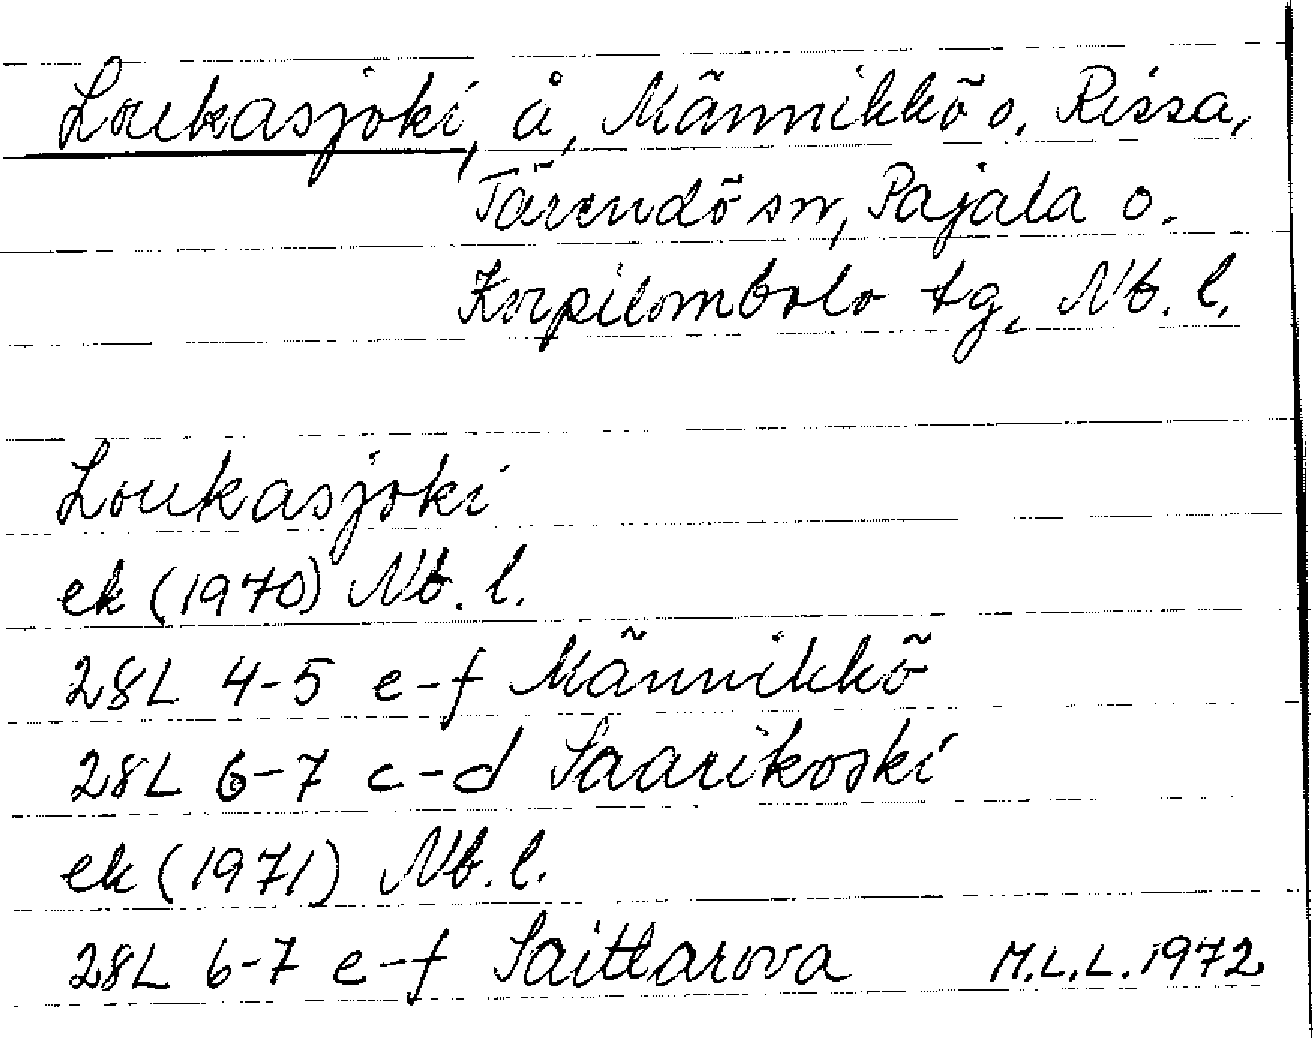 Loukasjoki, å, Männikkö o. Rissa,
Tärendö sn, Pajala o.
Korpilombolo tg, Nb. l.
Loukasjoki
ek (1970) Nb. l.
28L 4-5 e-f Männikkö
28L 6-7 c-d Saarikoski
ek (1971) Nb. l.
28L 6-7 e-f Saittarova M.L.L. 1972